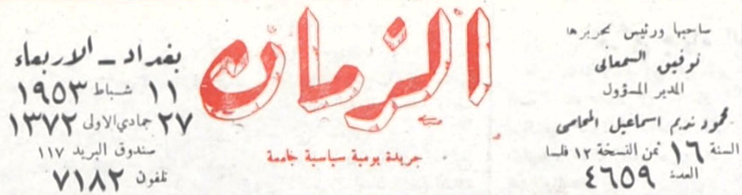 صاحبها ورئيس تحريرها
توفيق السمعاني
المدير المسؤول
محمود نديم اسماعيل المحامي
السنة ١٦ ثمن النسخة ١٢ فلسا
العدد ٤٦٥٩
الزمان
جريدة يومية سياسية جامعة
بغداد ــ الاربعاء
١١ شباط ١٩٥٣
٢٧ جمادي الاولى ١٣٧٢
صندوق البريد ١١٧
تلفون ٧١٨٢